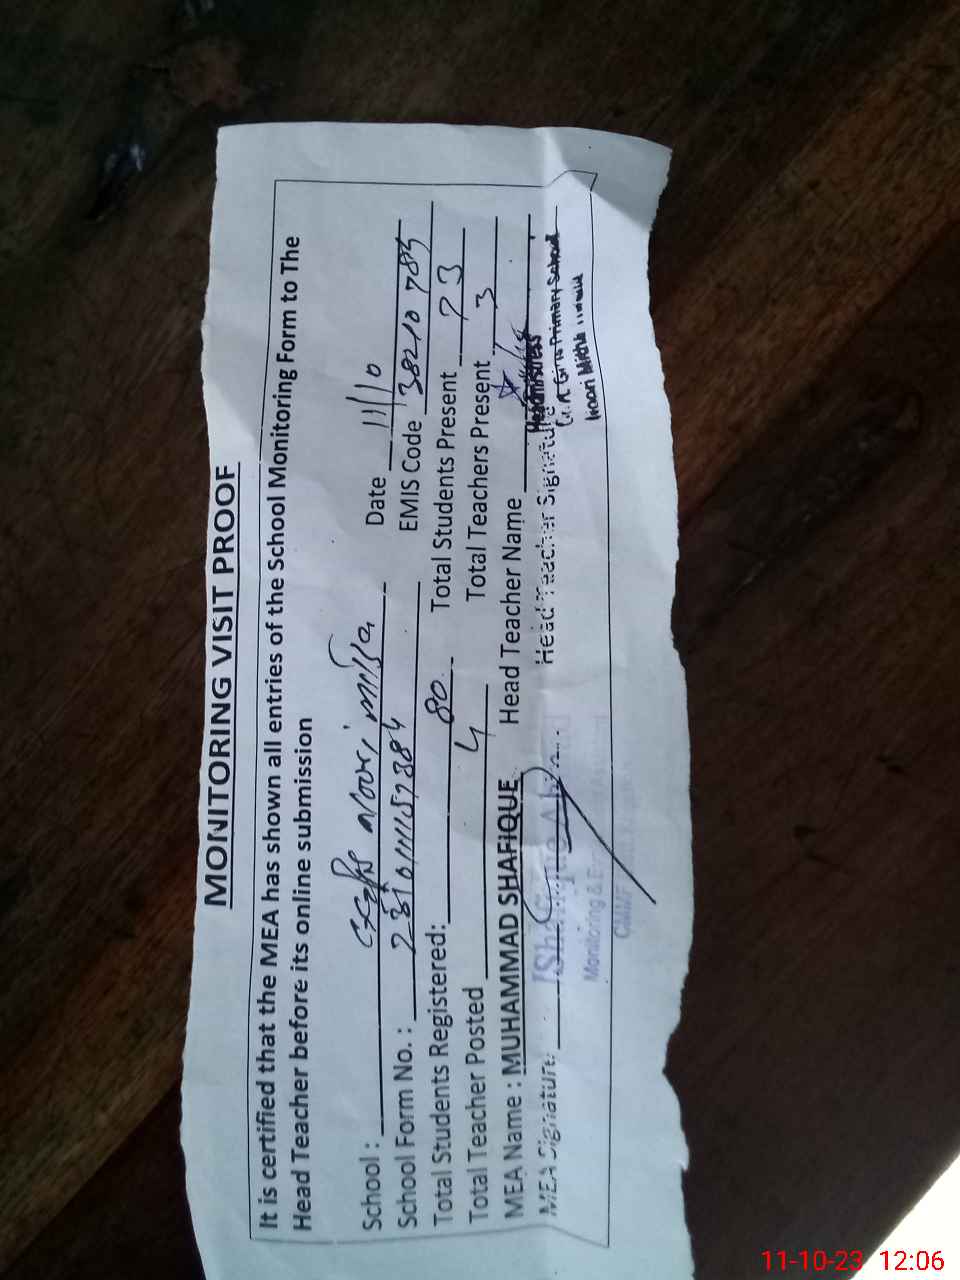 MONITORING VISIT PROOF
It is certified that the MEA has shown all entries of the School Monitoring Form to The
Head Teacher before its online submission
School : GGPS Noori mitha Date 11/10
School Form No. : EMIS Code 38210 784
Total Students Registered: 80 Total Students Present 73
Total Teacher Posted 4 Total Teachers Present 3
MEA Name : MUHAMMAD SHAFIQUE Head Teacher Name
Headmistress
MEA Signature: Head Teacher Signature
Girls Primary School
Noori Mitha
Monitoring &
11-10-23 12:06